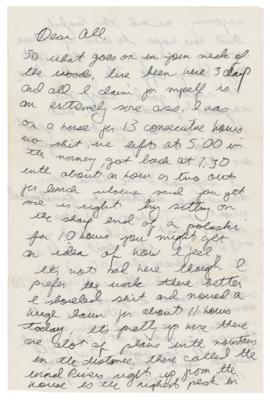 Dear All
So what goes on in your neck of
the woods, Ive been here 3 days
and all I claim for myself is
an extremely sore ass, I was
on a horse for 13 consecutive hours
no shit we left at 5:00 in
the morning, got back at 7:30
with about an hour or two out
for lunch whoever said you get
me is right try sitting on
the sharp end of a
for 10 hours you might get
an idea of how I feel
its not bad here though I
prefer the work there better
I shoveled shit and mowed a
huge lawn for about 11 hours
today. its pretty up here there
are alot of plains with mountains
in the distance, there called the
wind Rivers right up from the
house is the highest peak in